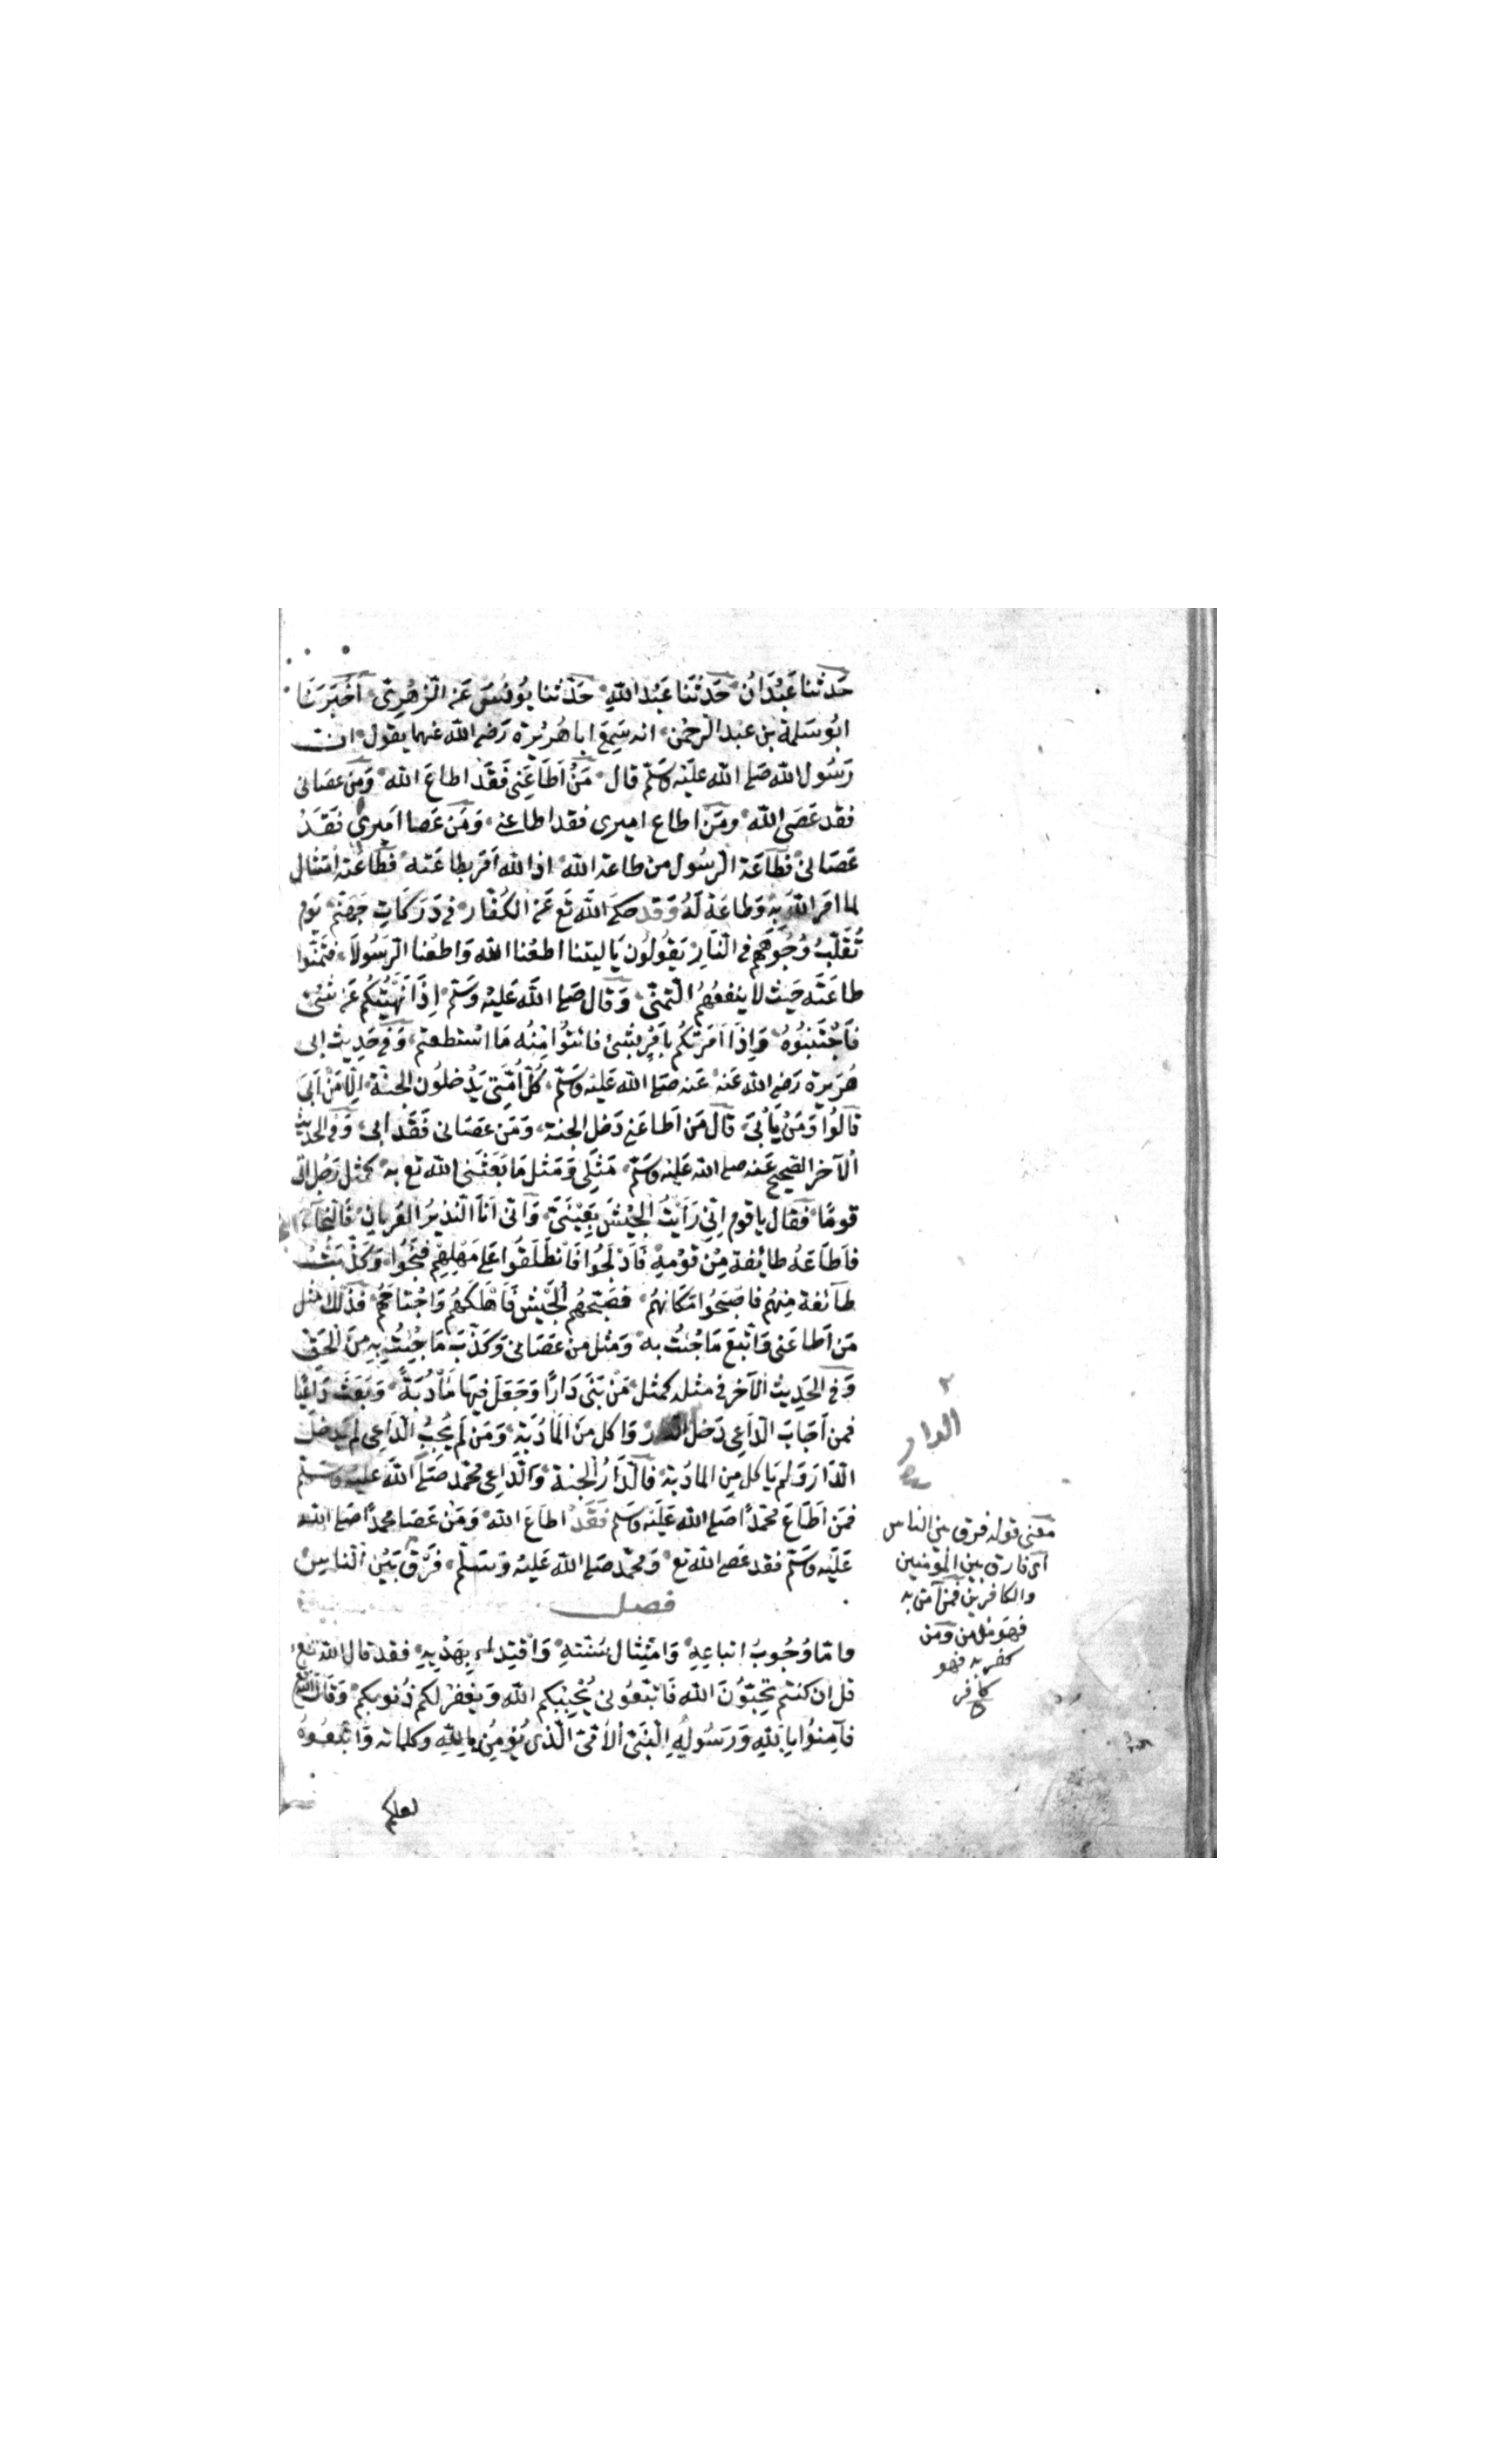 حَدثنا عَبْدَانُ حَدثنَا عَبْد اللهِ حَدثنا يُونُسُ عَنِ الزُّهْرِيّ اَخْبَرَنَا
ابُو سَلمة بن عبد الرحمٰن انه سَمِعَ ابا هُرَيْرة رَضى الله عنهما يقول انت
رَسُول الله صَلى الله عليْه وسَلّم قال مَنْ اَطَاعَنِى فَقَد اطاعَ الله وَمَن عصَانى
فقد عَصَى الله ومَن اطاع اميرى فقد اطاعنى وَمَن عَصَا اَميرى فَقَدْ
عَصَانى فطَاعَة الرسُول من طاعة الله اذ الله اَمَر بطاعَته فطَاعَته امتثال
لما امَر اللهُ بهِ وَطاعَة لَهُ وَقد حكى الله تع عَن الكُفّار فى دَرَكَاتِ جَهنّم يَوم
تُقَلّبُ وُجُوهُهُم فى النَّارِ يَقُولُون يَا ليتنا اطعْنا الله وَاطعْنا الرّسُولا فتمنّوا
طاعَتَه حَيث لا ينفعُهُم التّمنّى وَقَال صَلى الله عَليْه وَسَلّم اِذَا نَهَيْتُكم عَن شئ
فَاجْتَنبُوهُ وَاِذَا اَمَرْتكُم بِاَمْرٍ بشئ فائتُوا مِنْه مَا اسْتطعتم وَفى حَدِيث ابى
هُرَيرة رَضى الله عَنه عَنه صَلى الله عَليْه وَسَلّم كُلّ اُمّتِى يَدْخلُون الجنّة اِلّا مَنْ اَبَى
قالُوا وَمَنْ يَأْبَى قال مَن اَطاعَنى دَخل الجنة وَمَن عَصَانى فَقَد ابى وَفى الحديث
الآخر الصّحيح عَنه صلى الله عَليْه وسَلّم مَثَلِى وَمَثَل مَا بَعَثَنى الله تع به كمثل رَجُل اتى
قومًا فَقال يا قوم اِنّى رَاَيْتُ الجيْشَ بِعَيْنَىَّ وَاَنّى اَنَا النّذيرُ العُريانُ فَالنّجاءَ
فاَطَاعَهُ طائِفة مِنْ قَوْمهِ فَاَدْلَجُوا فَانطَلَقُوا عَلى مَهَلِهِم فنجَوا وَكذّبَتْ
طآئفة مِنهُم فاصْبَحُوا مَكَانهُم فصَبّحَهُم الجَيْش فَاَهْلكَهُم وَاجْتاحَهُم فذٰلك مثل
مَن اَطاعَنى وَاتّبَعَ مَا جئتُ به وَمَثل مَن عَصَانى وَكَذّبَ مَا جِئتُ بِهِ مِنَ الحَق
وَفى الحَدِيث الآخر فى مثله كمثل مَنْ بَنَى دَارًا وَجَعَل فيهَا مَأْدُبَةً وَبَعَث دَاعيًا
فمن اَجَابَ الدّاعِى دَخل الدار وَاكل مِن المَأدُبَةِ وَمَن لَم يُجِبُ الدّاعِى لم يَدخل
الدّارَ وَلم يَاكل مِن المادبة فالدّارُ الجنة وَالدّاعِى محمّد صَلّى الله عليه وسلّم
فمَن اَطَاعَ محمّدًا صَلى الله عَليْه وسَلم فَقَد اطاعَ الله وَمَن عَصَا محمدًا صَلى الله
عَليْه وَسَلّم فقد عَصى الله تع وَمحمّد صَلى الله عَليْه وَسَلّم فَرّق بَيْنَ النّاسِ
فصل
وامّا وُجُوبُ اتباعِهِ وَامتِثال سُنّتهِ وَاقْتِداء بِهَدْيهِ فقد قال الله تع
قل ان كنتم تُحِبّوُنَ الله فَاتبَعُونى يُحْبِبكم الله وَيغفر لكم ذُنوبكم وَقال الله تع
فآمِنُوا بِاللهِ وَرَسُولِهِ النّبَى الاُمّىّ الّذى يُؤمِنُ بِاللهِ وكلماته وَاتّبِعُوهُ
لعلكم
الدار
صح
مَعنى قوله فرق بين الناس
اى فارق بين المؤمنين
والكافرين فمن آمن به
فهو مؤمن ومن
كفر به فهو
كافر